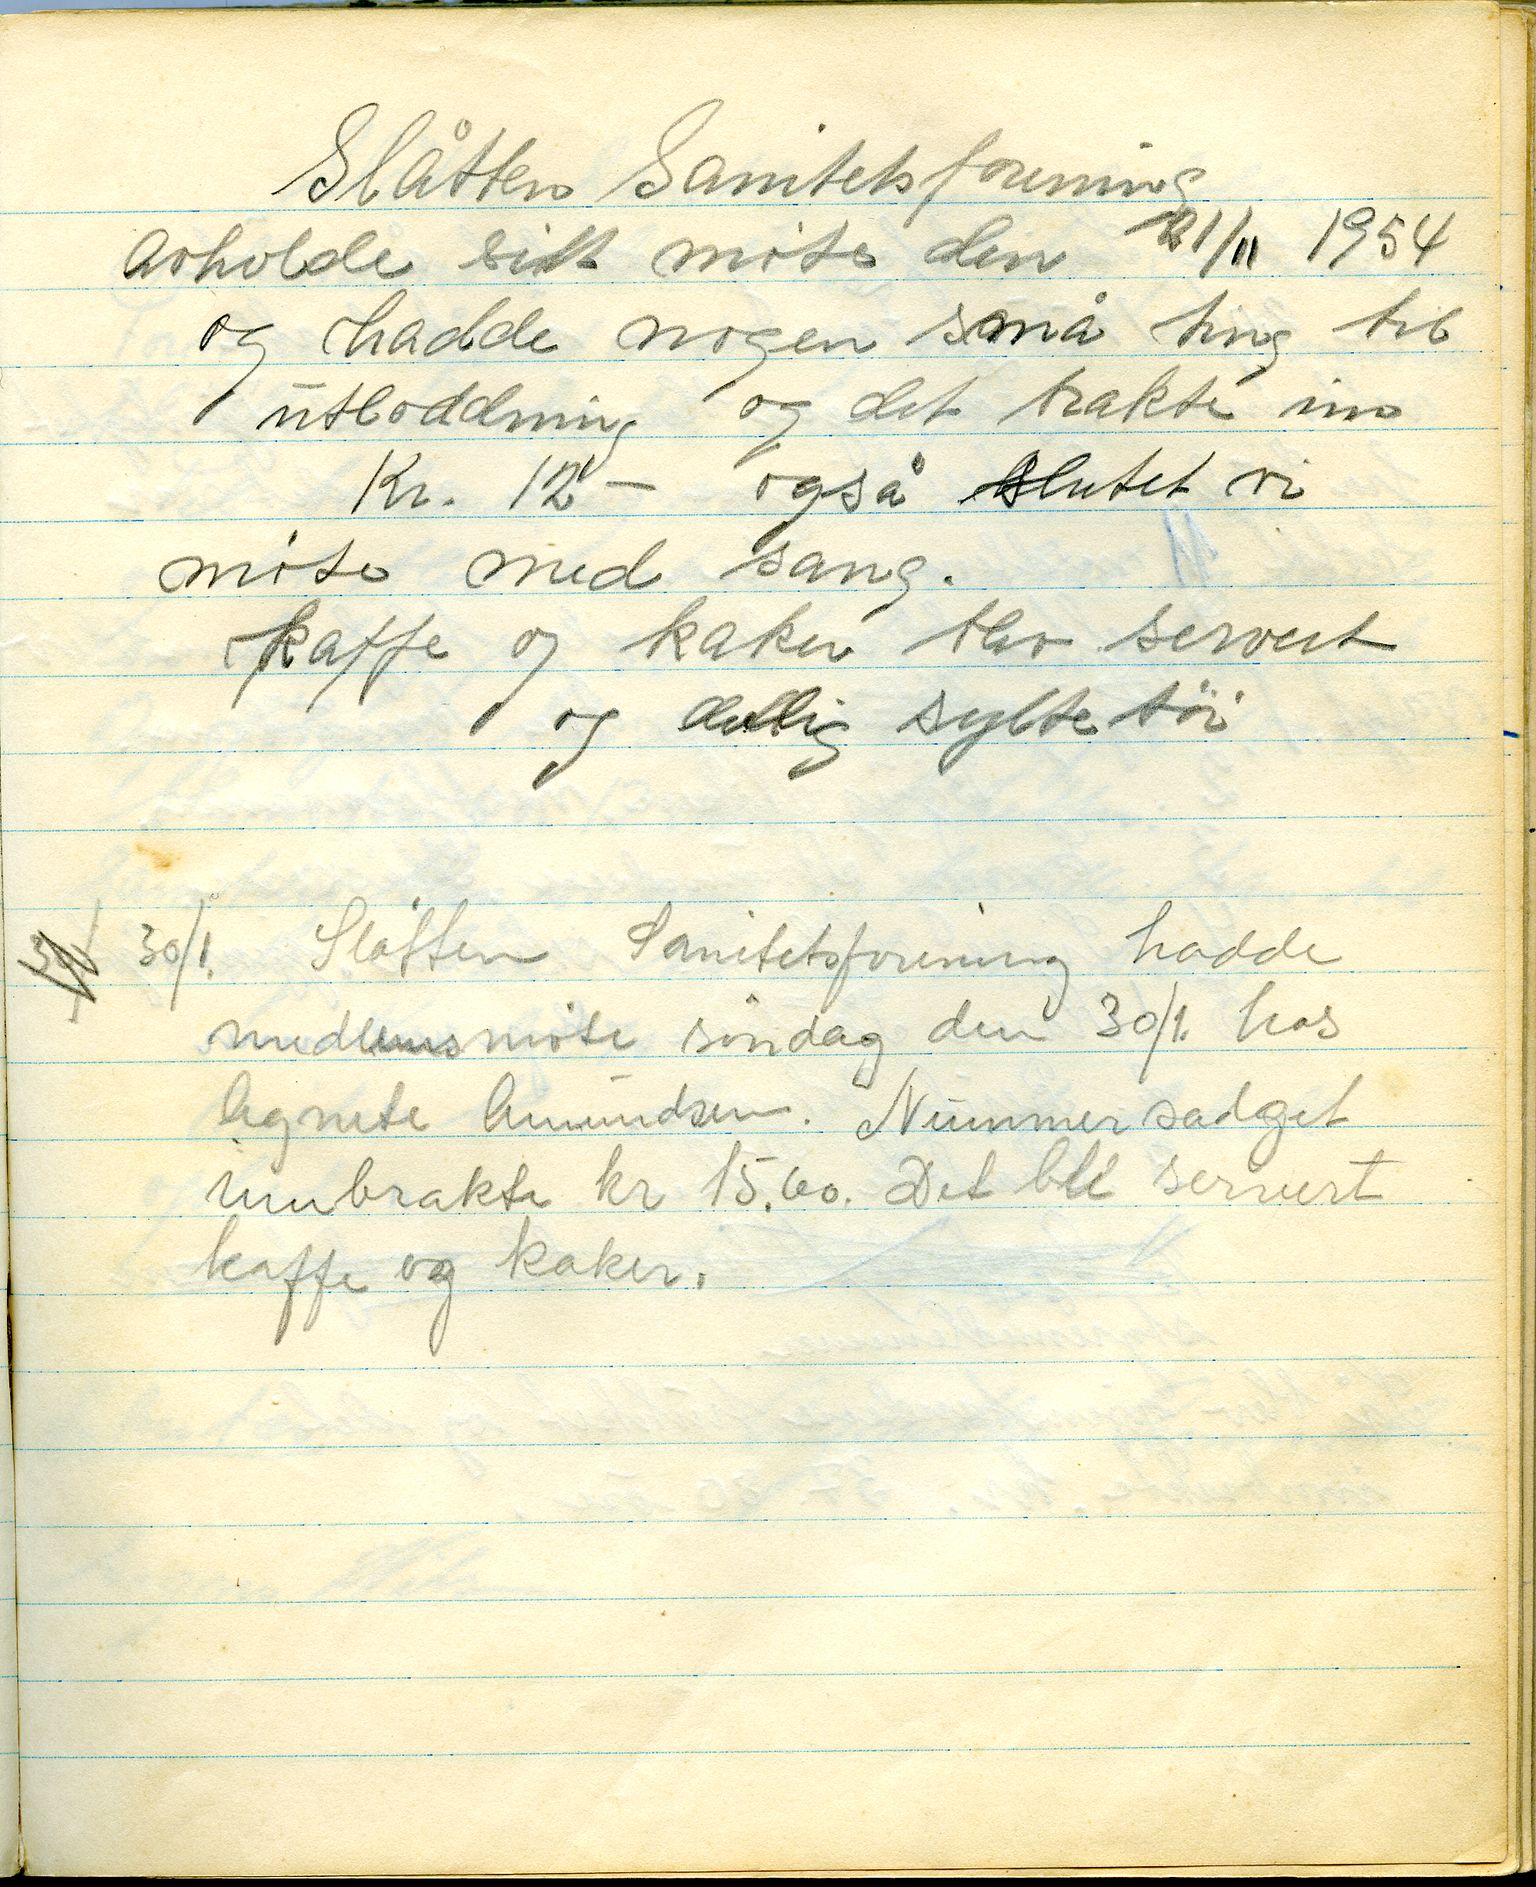 Slåtten Sanitetsforening
avholde sitt møte den 21/11 1954
og hadde nogen små ting til
utloddning og det trakte inn
Kr. 12,- også slutet vi
møte med sang.
kaffe og kaker blev servert
og deilig syltetöi
30/1. Slåtten Sanitetsforening hadde
medlemsmøte søndag den 30/1. hos
Agnete Amundsen. Nummersalget
innbrakte kr 15,60. Det ble servert
kaffe og kaker.